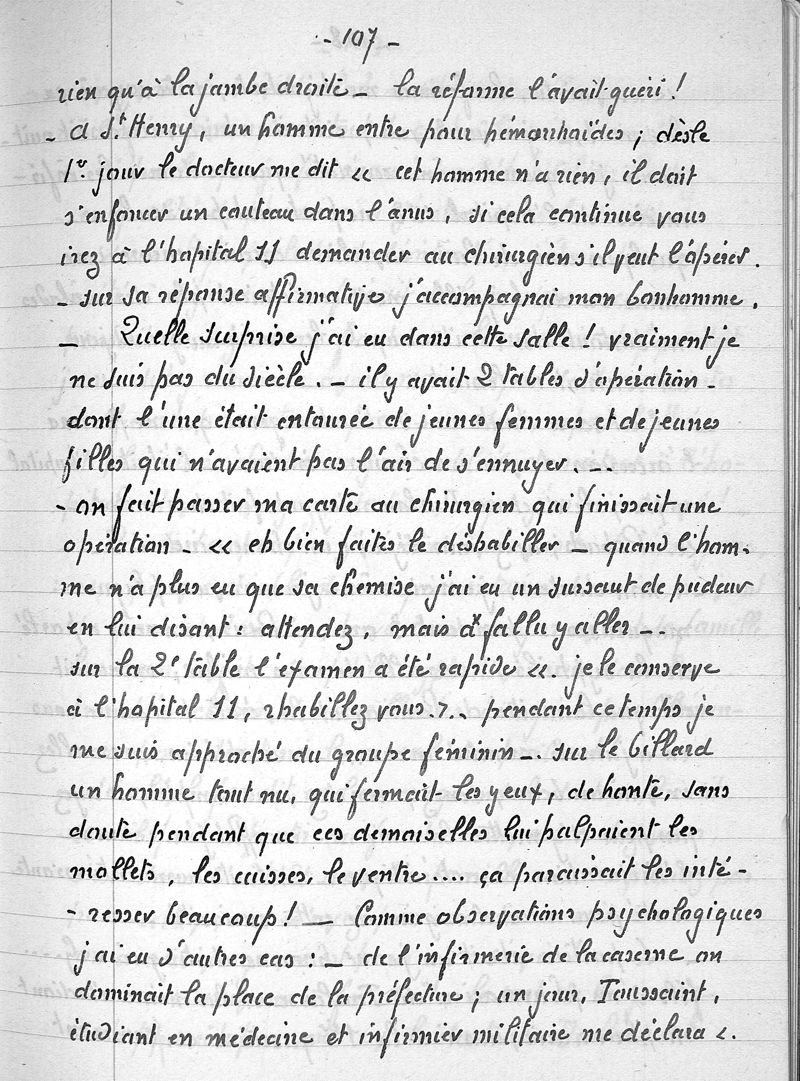 - 107 -
rien qu'à la jambe droite — la réforme l'avait guéri !
- à St Henry, un homme entre pour hémorrhoïdes ; dès le
1er jour le docteur me dit « cet homme n'a rien, il doit
s'enfoncer un couteau dans l'anus, si cela continue vous
irez à l'hopital 11 demander au chirurgien s'il veut l'opérer.
- sur sa réponse affirmative j'accompagnai mon bonhomme.
— Quelle surprise j'ai eu dans cette salle ! vraiment je
ne suis pas du siècle. — il y avait 2 tables d'opération -
dont l'une était entourée de jeunes femmes et de jeunes
filles qui n'avaient pas l'air de s'ennuyer. -.
- on fait passer ma carte au chirurgien qui finissait une
opération - « eh bien faites le déshabiller — quand l'hom-
me n'a plus eu que sa chemise j'ai eu un sursaut de pudeur
en lui disant : attendez, mais a fallu y aller -.
sur la 2e table l'examen a été rapide «. je le conserve
à l'hopital 11, rhabillez vous. ». pendant ce temps je
me suis approché du groupe féminin -. sur le billard
un homme tout nu, qui fermait les yeux, de honte, sans
doute pendant que ces demoiselles lui palpaient les
mollets, les cuisses, le ventre.... ça paraissait les inté-
- resser beaucoup ! — Comme observations psychologiques
j'ai eu d'autres cas : — de l'infirmerie de la caserne on
dominait la place de la préfecture ; un jour, Toussaint,
étudiant en médecine et infirmier militaire me déclara «.